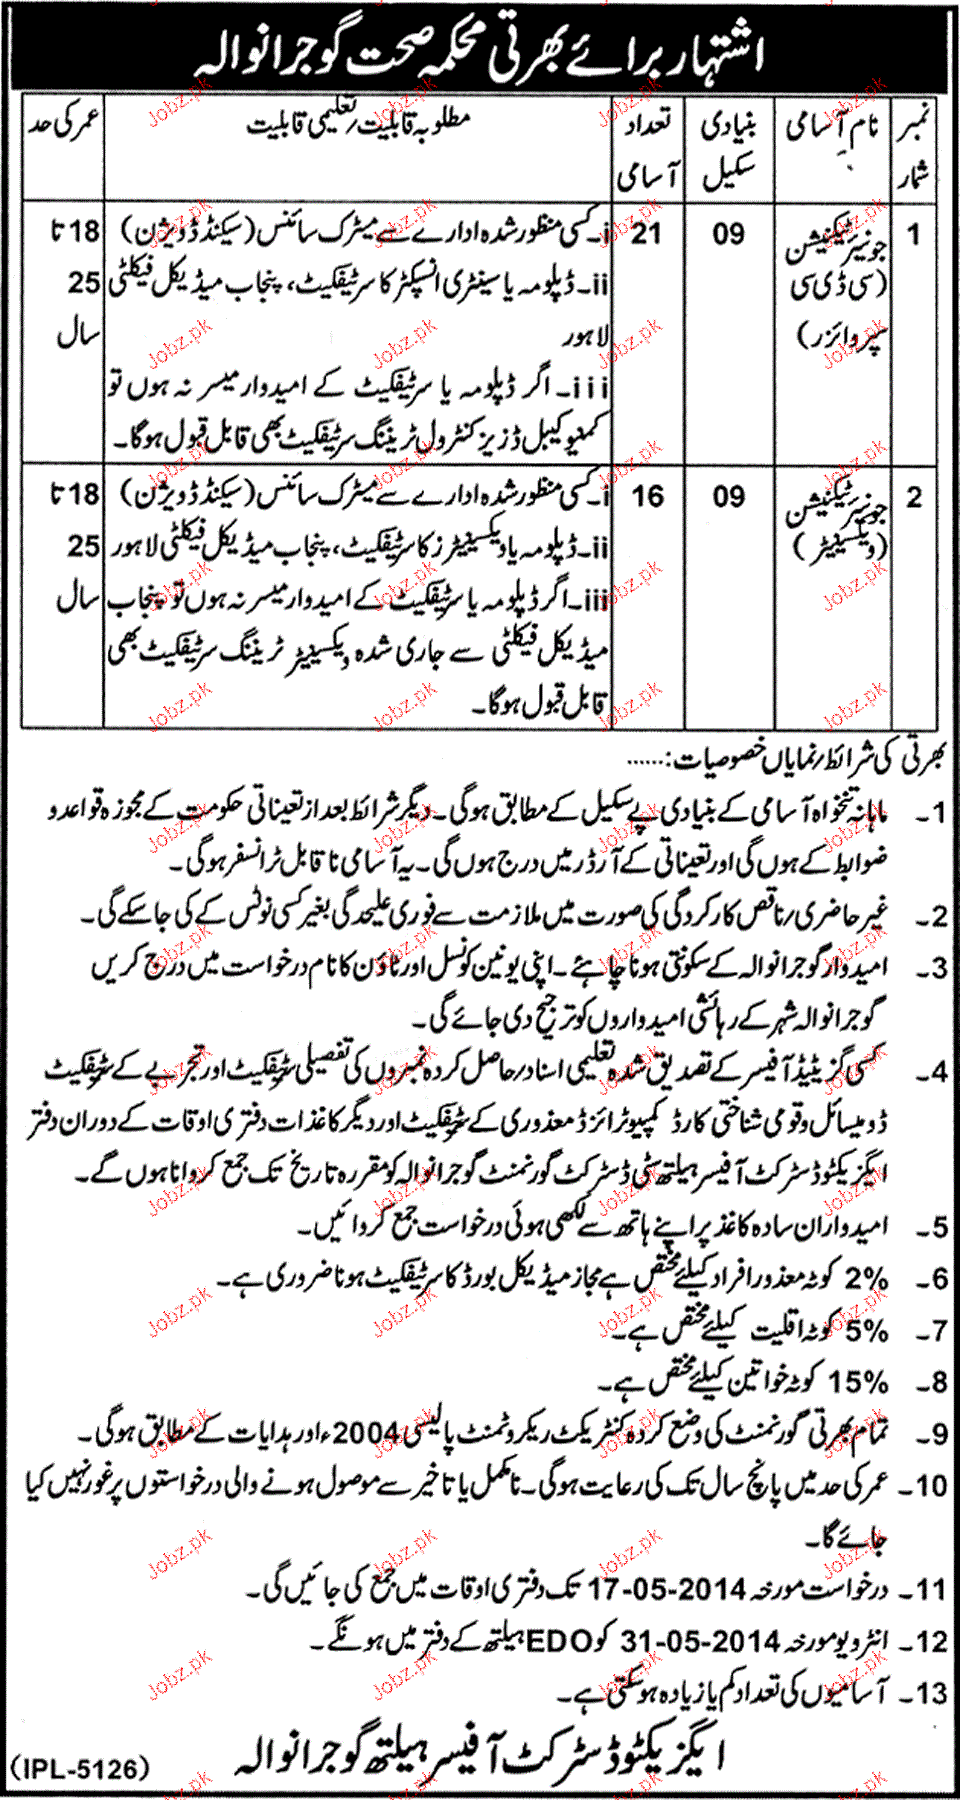 اشتہار برائے بھرتی محکمہ صحت گوجرانوالہ
نمبر شمار
نام آسامی
بنیادی سکیل
تعداد آسامی
مطلوبہ قابلیت/تعلیمی قابلیت
عمر کی حد
1
جونیئر ٹیکنیشن
(سی ڈی سی
سپروائزر)
09
21
i۔ کسی منظور شدہ ادارے سے میٹرک سائنس (سیکنڈ ڈویژن)
ii۔ ڈپلومہ یا سینٹری انسپکٹر کا سرٹیفکیٹ، پنجاب میڈیکل فیکلٹی
لاہور
iii۔ اگر ڈپلومہ یا سرٹیفکیٹ کے امیدوار میسر نہ ہوں تو
کمیونیکیبل ڈزیز کنٹرول ٹریننگ سرٹیفکیٹ بھی قابل قبول ہوگا۔
18 تا
25
سال
2
جونیئر ٹیکنیشن
(ویکسینیٹر)
09
16
i۔ کسی منظور شدہ ادارے سے میٹرک سائنس (سیکنڈ ڈویژن)
ii۔ ڈپلومہ یا ویکسینیٹرز کا سرٹیفکیٹ، پنجاب میڈیکل فیکلٹی لاہور
iii۔ اگر ڈپلومہ یا سرٹیفکیٹ کے امیدوار میسر نہ ہوں تو پنجاب
میڈیکل فیکلٹی سے جاری شدہ ویکسینیٹر ٹریننگ سرٹیفکیٹ بھی
قابل قبول ہوگا۔
18 تا
25
سال
بھرتی کی شرائط/نمایاں خصوصیات:......
1۔ ماہانہ تنخواہ آسامی کے بنیادی پے سکیل کے مطابق ہوگی۔ دیگر شرائط بعد از تعیناتی حکومت کے مجوزہ قواعد و
ضوابط کے ہوں گی اور تعیناتی کے آرڈر میں درج ہوں گی۔ یہ آسامی ناقابل ٹرانسفر ہوگی۔
2۔ غیر حاضری/ناقص کارکردگی کی صورت میں ملازمت سے فوری علیحدگی بغیر کسی نوٹس کے کی جا سکے گی۔
3۔ امیدوار گوجرانوالہ کے سکونتی ہونا چاہئے۔ اپنی یونین کونسل اور ٹاؤن کا نام درخواست میں درج کریں
گوجرانوالہ شہر کے رہائشی امیدواروں کو ترجیح دی جائے گی۔
4۔ کسی گزیٹیڈ آفیسر کے تصدیق شدہ تعلیمی اسناد/حاصل کردہ نمبروں کی تفصیلی سرٹیفکیٹ اور تجربے کے سرٹیفکیٹ
ڈومیسائل و قومی شناختی کارڈ کمپیوٹرائزڈ معذوری کے سرٹیفکیٹ اور دیگر کاغذات دفتری اوقات کے دوران دفتر
ایگزیکٹو ڈسٹرکٹ آفیسر ہیلتھ سٹی ڈسٹرکٹ گورنمنٹ گوجرانوالہ کو مقررہ تاریخ تک جمع کروانا ہوں گے۔
5۔ امیدواران سادہ کاغذ پر اپنے ہاتھ سے لکھی ہوئی درخواست جمع کروائیں۔
6۔ 2% کوٹہ معذور افراد کیلئے مختص ہے مجاز میڈیکل بورڈ کا سرٹیفکیٹ ہونا ضروری ہے۔
7۔ 5% کوٹہ اقلیت کیلئے مختص ہے۔
8۔ 15% کوٹہ خواتین کیلئے مختص ہے۔
9۔ تمام بھرتی گورنمنٹ کی وضع کردہ کنٹریکٹ ریکروٹمنٹ پالیسی 2004ء اور ہدایات کے مطابق ہوگی۔
10۔ عمر کی حد میں پانچ سال تک کی رعایت ہوگی۔ نامکمل یا تاخیر سے موصول ہونے والی درخواستوں پر غور نہیں کیا
جائے گا۔
11۔ درخواست مورخہ 17-05-2014 تک دفتری اوقات میں جمع کی جائیں گی۔
12۔ انٹرویو مورخہ 31-05-2014 کو EDO ہیلتھ کے دفتر میں ہونگے۔
13۔ آسامیوں کی تعداد کم یا زیادہ ہو سکتی ہے۔
ایگزیکٹو ڈسٹرکٹ آفیسر ہیلتھ گوجرانوالہ
(IPL-5126)
Jobz.pk